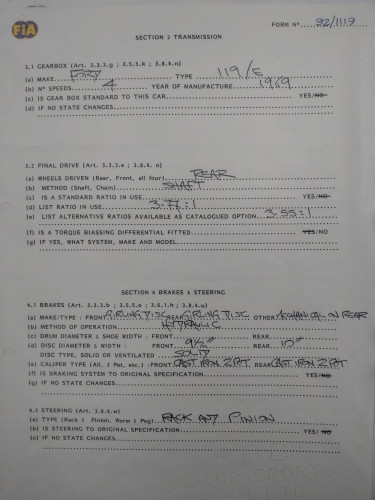 FiA
FORM Nº 92/1119
SECTION 3 TRANSMISSION
3.1 GEARBOX (Art. 3.3.3.g ; 3.5.5.k ; 3.8.4.n)
(a) MAKE FORD TYPE 119/E
(b) Nº SPEEDS 4 YEAR OF MANUFACTURE 1969
(c) IS GEAR BOX STANDARD TO THIS CAR YES/NO
(d) IF NO STATE CHANGES
3.2 FINAL DRIVE (Art. 3.3.3.e ; 3.8.4. o)
(a) WHEELS DRIVEN (Rear, Front, all four) REAR
(b) METHOD (Shaft, Chain) SHAFT
(c) IS A STANDARD RATIO IN USE YES/NO
(d) LIST RATIO IN USE 3.77:1
(e) LIST ALTERNATIVE RATIOS AVAILABLE AS CATALOGUED OPTION 3.55:1
(f) IS A TORQUE BIASSING DIFFERENTIAL FITTED YES/NO
(g) IF YES, WHAT SYSTEM, MAKE AND MODEL
SECTION 4 BRAKES & STEERING
4.1 BRAKES (Art. 3.3.3.b ; 3.5.5.o ; 3.6.1.h ; 3.8.4.u)
(a) MAKE/TYPE : FRONT GIRLING DISC REAR GIRLING DISC OTHER MECHANICAL ON REAR
(b) METHOD OF OPERATION HYDRAULIC
(c) DRUM DIAMETER & SHOE WIDTH : FRONT REAR
(d) DISC DIAMETER & WIDTH : FRONT 9½" REAR 10"
DISC TYPE, SOLID OR VENTILATED SOLID
(e) CALIPER TYPE (All, 2 Pot, etc.) :FRONT CAST IRON 2 POT REAR CAST IRON 2 POT
(f) IS BRAKING SYSTEM TO ORIGINAL SPECIFICATION YES/NO
(g) IF NO STATE CHANGES
4.2 STEERING (Art. 3.8.4.w)
(a) TYPE (Rack & Pinion, Worm & Peg) RACK AND PINION
(b) IS STEERING TO ORIGINAL SPECIFICATION YES/NO
(c) IF NO STATE CHANGES